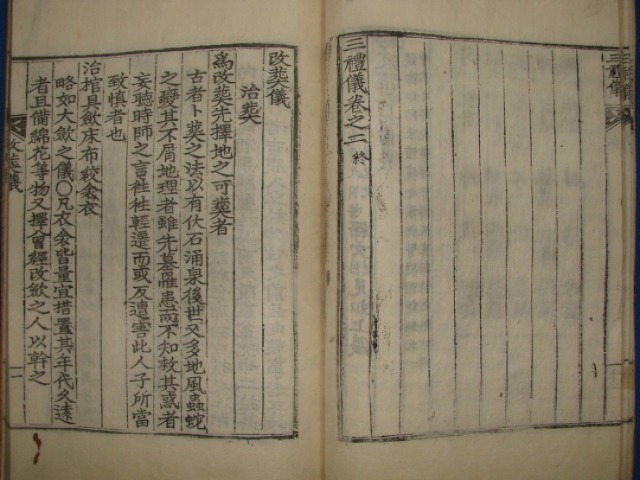 三禮儀卷之二 終
三禮儀
改葬儀
治葬
爲改葬先擇地之可葬者
古者卜葬之法以有伏石涌泉後世又多地風蟲蛇
之變其不屑地理者雖先墓罹患而不知救其惑者
妄聽時師之言往往輕遷而或反遭害此人子所當
致愼者也
治棺具斂床布絞衾衣
略如大斂之儀○凡衣衾皆量宜措置其年代久遠
者且備綿花等物又擇會經改斂之人以幹之
改葬儀
一